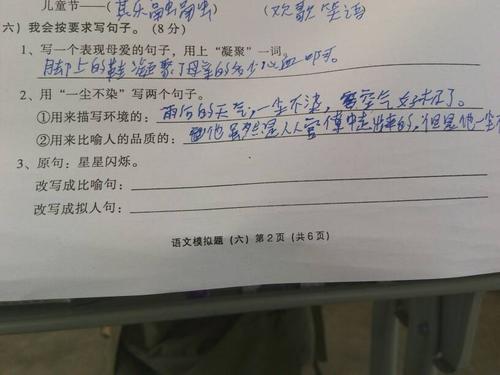 儿童节——(其乐融融融) (欢歌笑语)
六)我会按要求写句子。(8分)
1、写一个表现母爱的句子,用上“凝聚”一词。
脚上的鞋凝聚了母亲的多少心血啊!
2、用“一尘不染”写两个句子。
①用来描写环境的:雨后的天气,一尘不染,空气好极了。
②用来比喻人的品质的:他虽然是人人中走出来的,但是他一尘不
3、原句:星星闪烁。
改写成比喻句:
改写成拟人句:
语文模拟题(六)第2页(共6页)